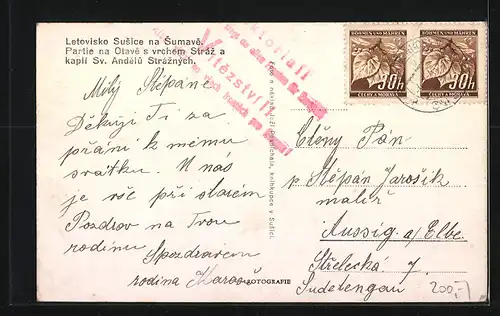 Letovisko Sušice na Šumavě.
Partie na Otavě s vrchem Stráž a
kaplí Sv. Andělů Strážných.
Milý Štěpáne.
Děkuji Ti za
přání k mému
svátku. U nás
je vše při starém
Pozdrav na Tvou
rodinu
Spozdravem
rodina
FOTOGRAFIE
Viktoria!!
Vítězství!!
BÖHMEN UND MÄHREN
30h
ČECHY A MORAVA
BÖHMEN UND MÄHREN
30h
ČECHY A MORAVA
Ctěný Pán
p Štěpán Jarošík
malíř
Aussig a/Elbe
Střelecká 7.
Sudetengau
200,-